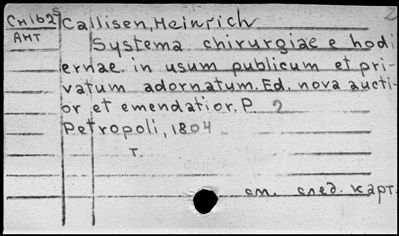 Ch162s Callisen, Heinrich
АНТ Systema chirurgiae e hodi
ernae in usum publicum et pri-
vatum adornatum. Ed. nova aucti-
or et emendatior. P. 2
Petropoli, 1804
т.
см. след. карт.